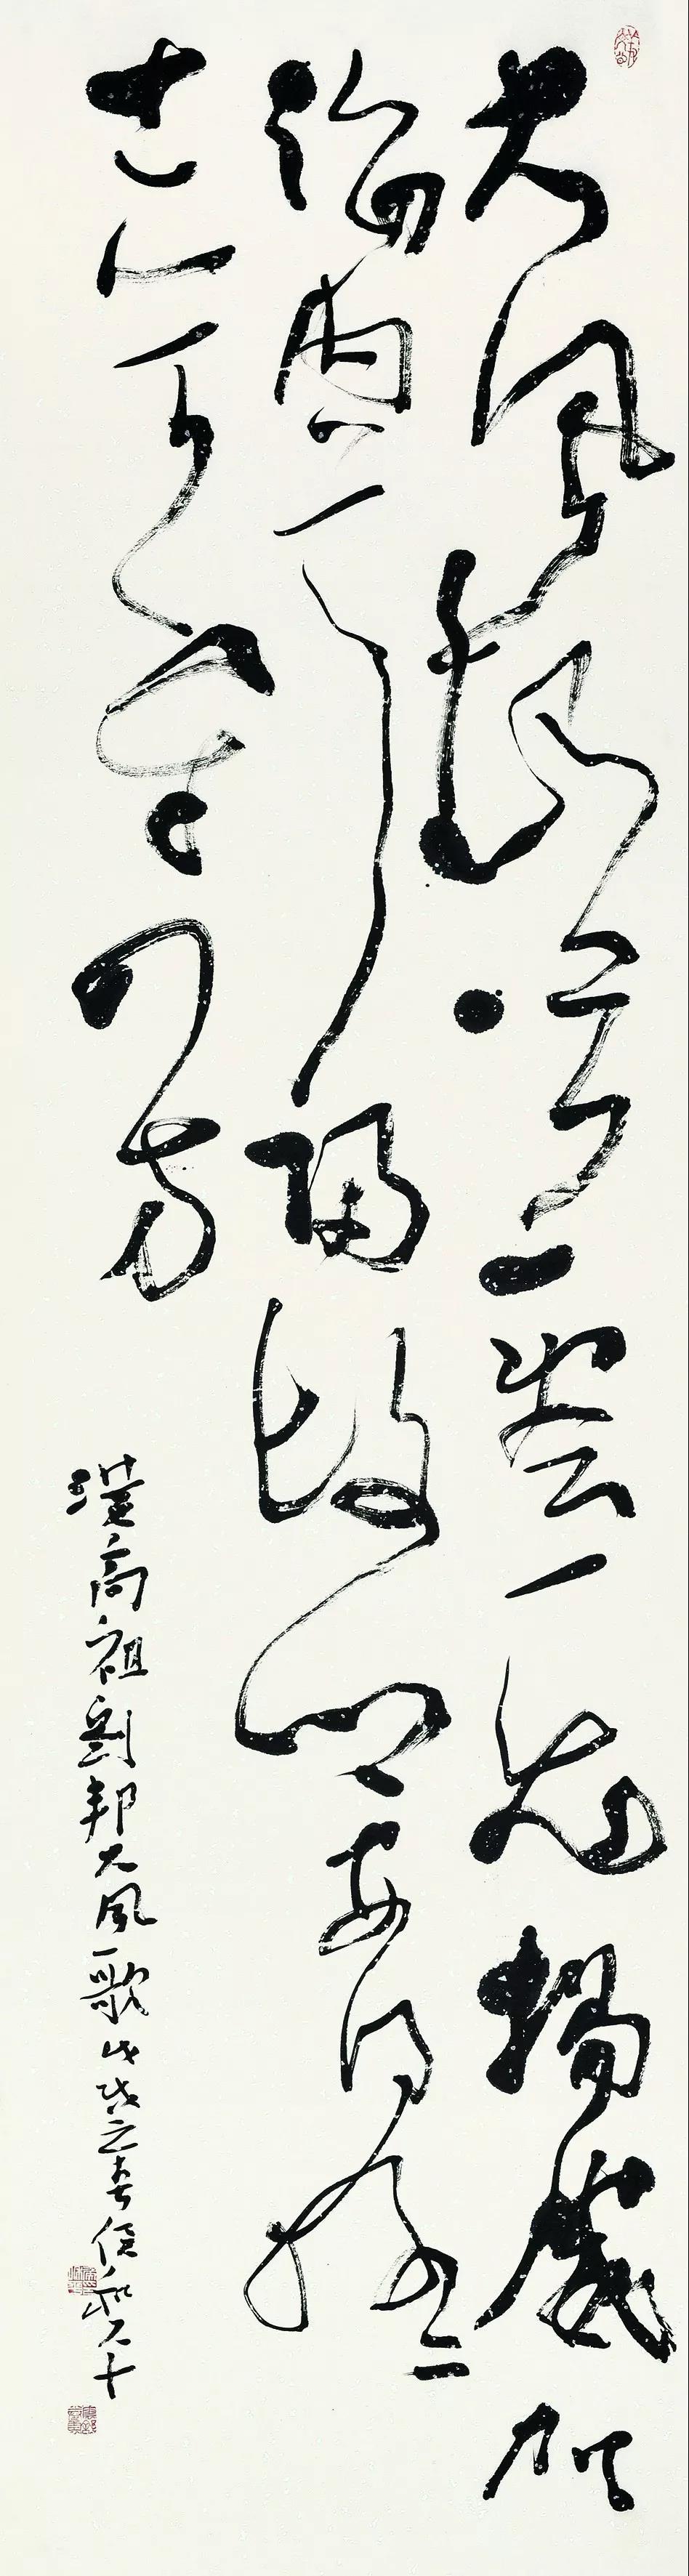 大風起兮雲飛揚威加
海内兮歸故鄉安得猛
士兮守四方
漢高祖劉邦大風歌戊戌之春侯